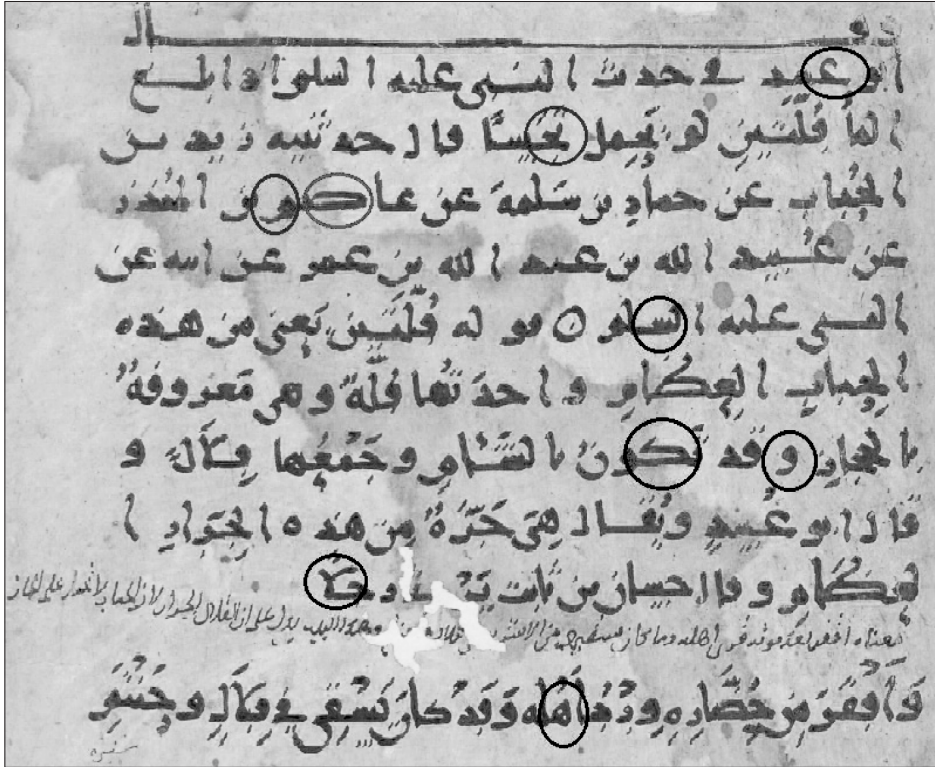 قال
ابو عبيد في حديث النبي عليه السلم اذا بلغ
الما قلتين لم يحمل نجسا قال حدثنيه زيد بن
الحباب عن حماد بن سلمة عن عاصم بن المنذر
عن عبيد الله بن عبد الله بن عمر عن ابيه عن
النبي عليه السلم ه قوله قلتين يعني من هذه
الحباب العظام واحدتها قلة وهي معروفة
بالحجاز وقد تكون بالشام وجمعها قلال و
قال ابو عبيد ويقال هي جرة من هذه الجرار ا
لعظام وقال حسان بن ثابت
معناه اقفر بعد اهله وما كان
وأقفر من حضاره ورد اهله وقد كان يسقي في قلال وحنتم